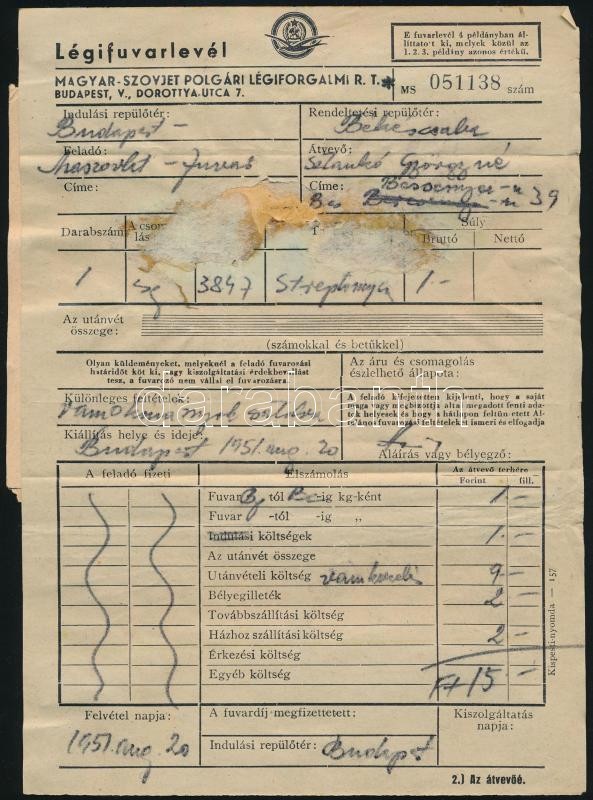 Légifuvarlevél
E fuvarlevél 4 példányban ál-
líttatott ki, melyek közül az
1. 2. 3. példány azonos értékű.
MAGYAR-SZOVJET POLGÁRI LÉGIFORGALMI R. T.*
BUDAPEST, V., DOROTTYA-UTCA 7.
MS 051138 szám
Indulási repülőtér: Rendeltetési repülőtér:
Budapest - Békéscsaba
Feladó: Átvevő:
Maszovlet - fuvar Szlankó Györgyné
Címe: Címe: Bessenyei-u 39
Darabszám Súly
Bruttó Nettó
1 3847 1.-
Az utánvét
összege:
(számokkal és betűkkel)
Olyan küldeményeket, melyeknél a feladó fuvarozási
határidőt köt ki, vagy kiszolgáltatási érdekbevallást
tesz, a fuvarozó nem vállal el fuvarozásra.
Az áru és csomagolás
észlelhető állapota:
Különleges feltételek:
A feladó kifejezetten kijelenti, hogy a saját
maga vagy megbízottja által megadott fenti ada-
tok helyesek és hogy a hátlapon feltün etett Ál-
talános fuvarozási feltételeket ismeri és elfogadja
Kiállítás helye és ideje:
Budapest 1951. aug. 20
Aláírás vagy bélyegző:
A feladó fizeti Elszámolás Az átvevő terhére
Forint fill.
Fuvar B-től Bc-ig kg-ként 1 -
Fuvar -tól -ig „
Indulási költségek 1 -
Az utánvét összege
Utánvételi költség vámkezelés 9 -
Bélyegilleték 2 -
Továbbszállítási költség
Házhoz szállítási költség 2 -
Érkezési költség
Egyéb költség Ft 15 -
Kispesti-nyomda — 157
Felvétel napja: A fuvardíj megfizettetett: Kiszolgáltatás
napja:
1951. aug. 20 Indulási repülőtér: Budapest
2.) Az átvevőé.
darabanth